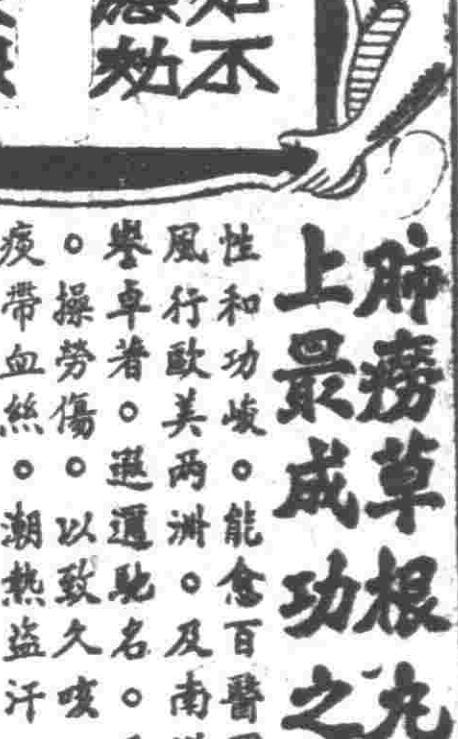 不
効
肺癆草根丸
上最成功之
性和功峻。能愈百醫
風行歐美两洲。及南
譽卓著。遐邇馳名。
。操勞傷。以致久咳
痰帶血絲。潮熱盜汗